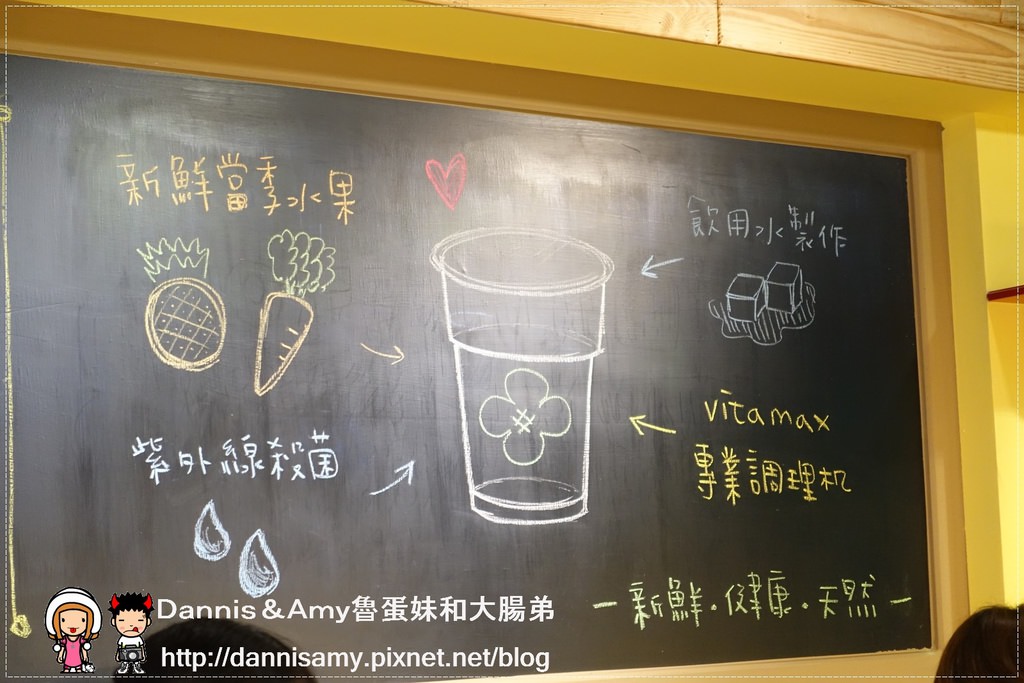 新鮮當季水果
飲用水製作
vitamax
專業調理机
紫外線殺菌
－新鮮．健康．天然－
Dannis＆Amy魯蛋妹和大腸弟
http://dannisamy.pixnet.net/blog